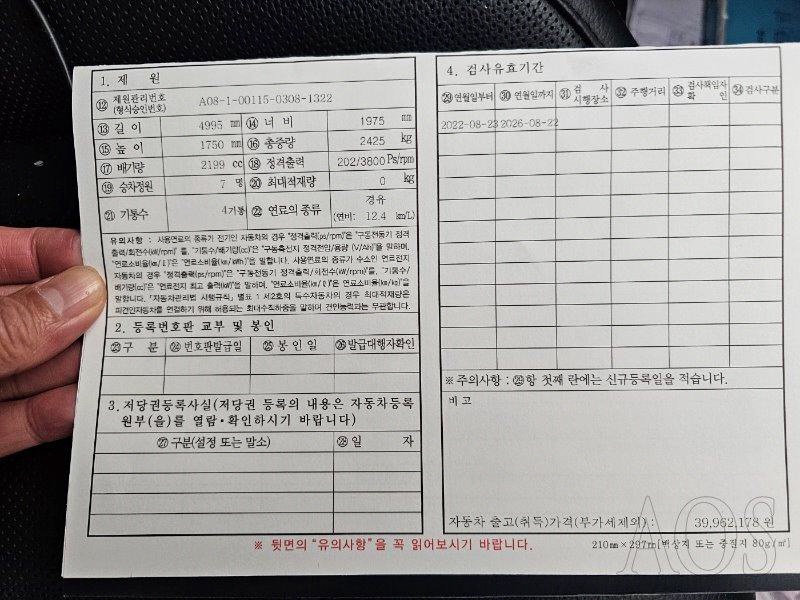 1. 제 원
⑫ 제원관리번호 (형식승인번호) A08-1-00115-0308-1322
⑬ 길 이 4995 mm ⑭ 너 비 1975 mm
⑮ 높 이 1750 mm ⑯ 총중량 2425 kg
⑰ 배기량 2199 cc ⑱ 정격출력 202/3800 Ps/rpm
⑲ 승차정원 7 명 ⑳ 최대적재량 0 kg
㉑ 기통수 4기통 ㉒ 연료의 종류 경유 (연비: 12.4 km/L)
유의사항 : 사용연료의 종류가 전기인 자동차의 경우 "정격출력(ps/rpm)"은 "구동전동기 정격
출력/회전수(kW/rpm)" 를, "기통수/배기량(cc)"은 "구동축전지 정격전압/용량 (V/Ah)"을 말하며,
"연료소비율(㎞/ℓ)"은 "연료소비율(㎞/kWh)"을 말합니다. 사용연료의 종류가 수소인 연료전지
자동차의 경우 "정격출력(ps/rpm)"은 "구동전동기 정격출력/회전수(kW/rpm)"를, "기통수/
배기량(cc)"은 "연료전지 최고 출력(kW)"을 말하며, "연료소비율(㎞/ℓ)"은 연료소비율(㎞/kg)"을
말합니다. 「자동차관리법 시행규칙」 별표 1 제2호의 특수자동차의 경우 최대적재량은
피견인자동차를 연결하기 위해 허용되는 최대수직하중을 말하며 견인능력과는 무관합니다.
2. 등록번호판 교부 및 봉인
㉓ 구 분 ㉔ 번호판발급일 ㉕ 봉 인 일 ㉖ 발급대행자확인
3. 저당권등록사실(저당권 등록의 내용은 자동차등록
원부(을)를 열람·확인하시기 바랍니다)
㉗ 구분(설정 또는 말소) ㉘ 일 자
4. 검사유효기간
㉙ 연월일부터 ㉚ 연월일까지 ㉛ 검 사 시행장소 ㉜ 주행거리 ㉝ 검사책임자 확 인 ㉞ 검사구분
2022-08-23 2026-08-22
※ 주의사항 : ㉙항 첫째 란에는 신규등록일을 적습니다.
비 고
자동차 출고(취득)가격(부가세제외) : 39,962,178 원
※ 뒷면의 "유의사항"을 꼭 읽어보시기 바랍니다.
210㎜×297㎜[백상지 또는 중질지 80g/㎡]
AOS